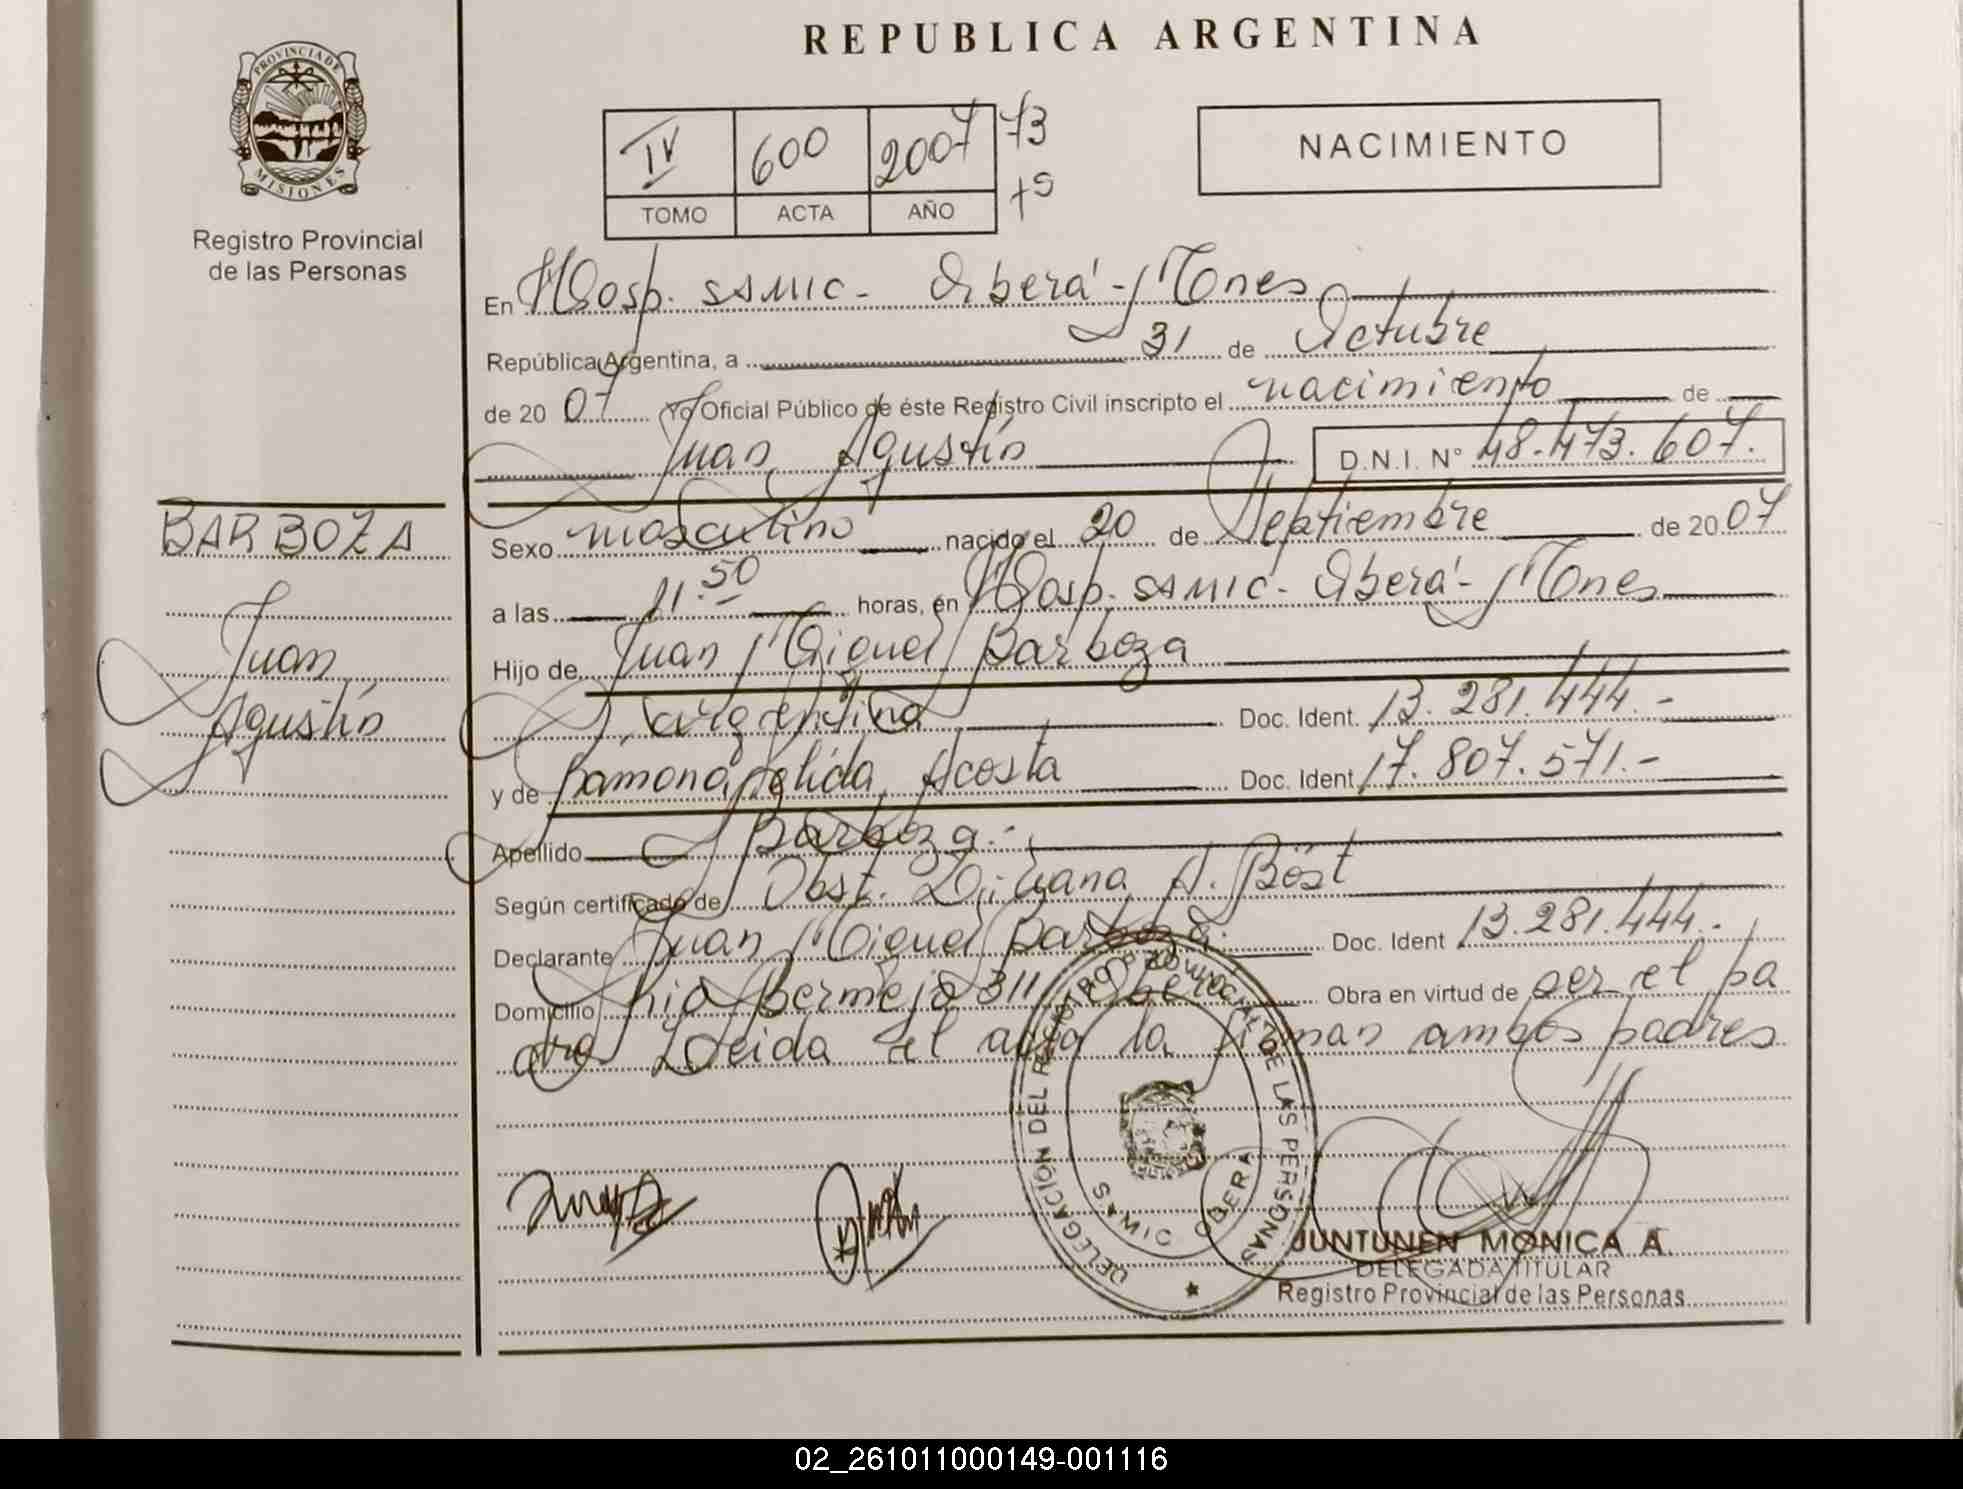 REPUBLICA ARGENTINA
PROVINCIA DE
MISIONES
Registro Provincial
de las Personas
IV 600 2007 73
TOMO ACTA AÑO
NACIMIENTO
En Hosp. SAMIC - Oberá - Mnes
República Argentina, a 31 de Octubre
de 2007 Yo Oficial Público de éste Registro Civil inscripto el nacimiento de
Juan Agustín D.N.I. N° 48.473.607.
BARBOZA
Juan
Agustín
Sexo masculino nacido el 20 de Septiembre de 2007
a las 11.50 horas, en Hosp. SAMIC - Oberá - Mnes
Hijo de Juan Miguel Barboza
argentina Doc. Ident. 13.281.444.-
y de Ramona Nélida Acosta Doc. Ident 17.807.571.-
Apellido Barboza.-
Según certificado de Obst. Liliana A. Böst
Declarante Juan Miguel Barboza. Doc. Ident 13.281.444.-
Domicilio Río Bermejo 311 Oberá Obra en virtud de ser el pa
dre Leida el acta la firman ambos padres
DELEGACIÓN DEL REGISTRO PROVINCIAL DE LAS PERSONAS
SAMIC OBERA
JUNTUNEN MONICA A.
DELEGADA TITULAR
Registro Provincial de las Personas
02_261011000149-001116